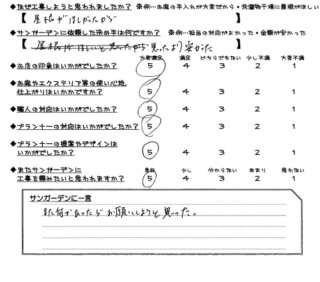 ◆なぜ工事しようと思われましたか? 参例…お庭の手入れが大変だから・洗濯物干場に屋根がほしい
【屋根がほしかったから】
◆サンガーデンに依頼した決め手は何ですか? 参例…担当の対応がよかった・金額が安かった
【屋根がほしいと思ったから 見たより安かった】
大変満足 満足 どちらでもない 少し不満 大変不満
◆お店の印象はいかがでしたか? 5 4 3 2 1
◆お庭やエクステリア等の使い心地、
仕上がりはいかがでしたか? 5 4 3 2 1
◆職人の対応はいかがでしたか? 5 4 3 2 1
◆プランナーの対応はいかがでしたか? 5 4 3 2 1
◆プランナーの提案やデザインは
いかがでしたか? 5 4 3 2 1
◆またサンガーデンに 少し 分からない あまり 思わない
工事を頼みたいと思われますか? 5 4 3 2 1
サンガーデンに一言
また何かあったらお願いしようと思った。